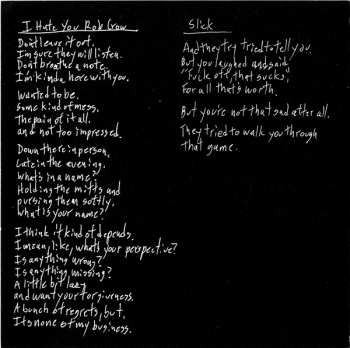 I Hate You Rob Crow
Don't leave it out.
I'm sure they will listen.
Don't breathe a note.
I'm kinda here with you.
Wanted to be.
Some kind of mess.
The pain of it all.
and not too impressed.
Down there in person.
Late in the evening.
What's in a name?
Holding the mitts and
pursing them softly.
What is your name?
I think it kind of depends.
I mean, like, what's your perspective?
Is anything wrong?
Is anything missing?
A little bit lazy
and want your forgiveness.
A bunch of regrets, but.
Its none of my business.
Slick
And they try tried to tell you.
But you laughed and said,
"Fuck off, that sucks,"
For all that's worth.
But you're not that sad after all.
They tried to walk you through
that game.